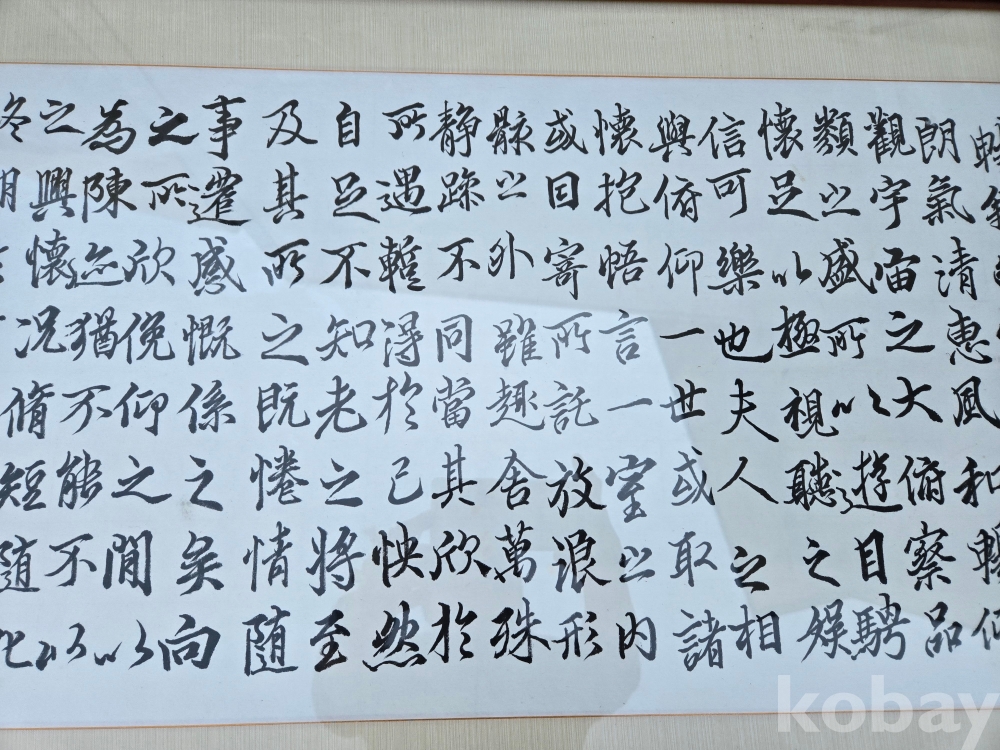 朗氣清惠風和暢仰
觀宇宙之大俯察品
類之盛所以遊目騁
懷足以極視聽之娛
信可樂也夫人之相
與俯仰一世或取諸
懷抱悟言一室之內
或因寄所託放浪形
骸之外雖趣舍萬殊
静躁不同當其欣於
所遇蹔得於己怏然
自足不知老之將至
及其所之既惓情隨
事遷感慨係之矣向
之所欣俛仰之間以
為陳迹猶不能不以
之興懷況脩短隨化
kobay